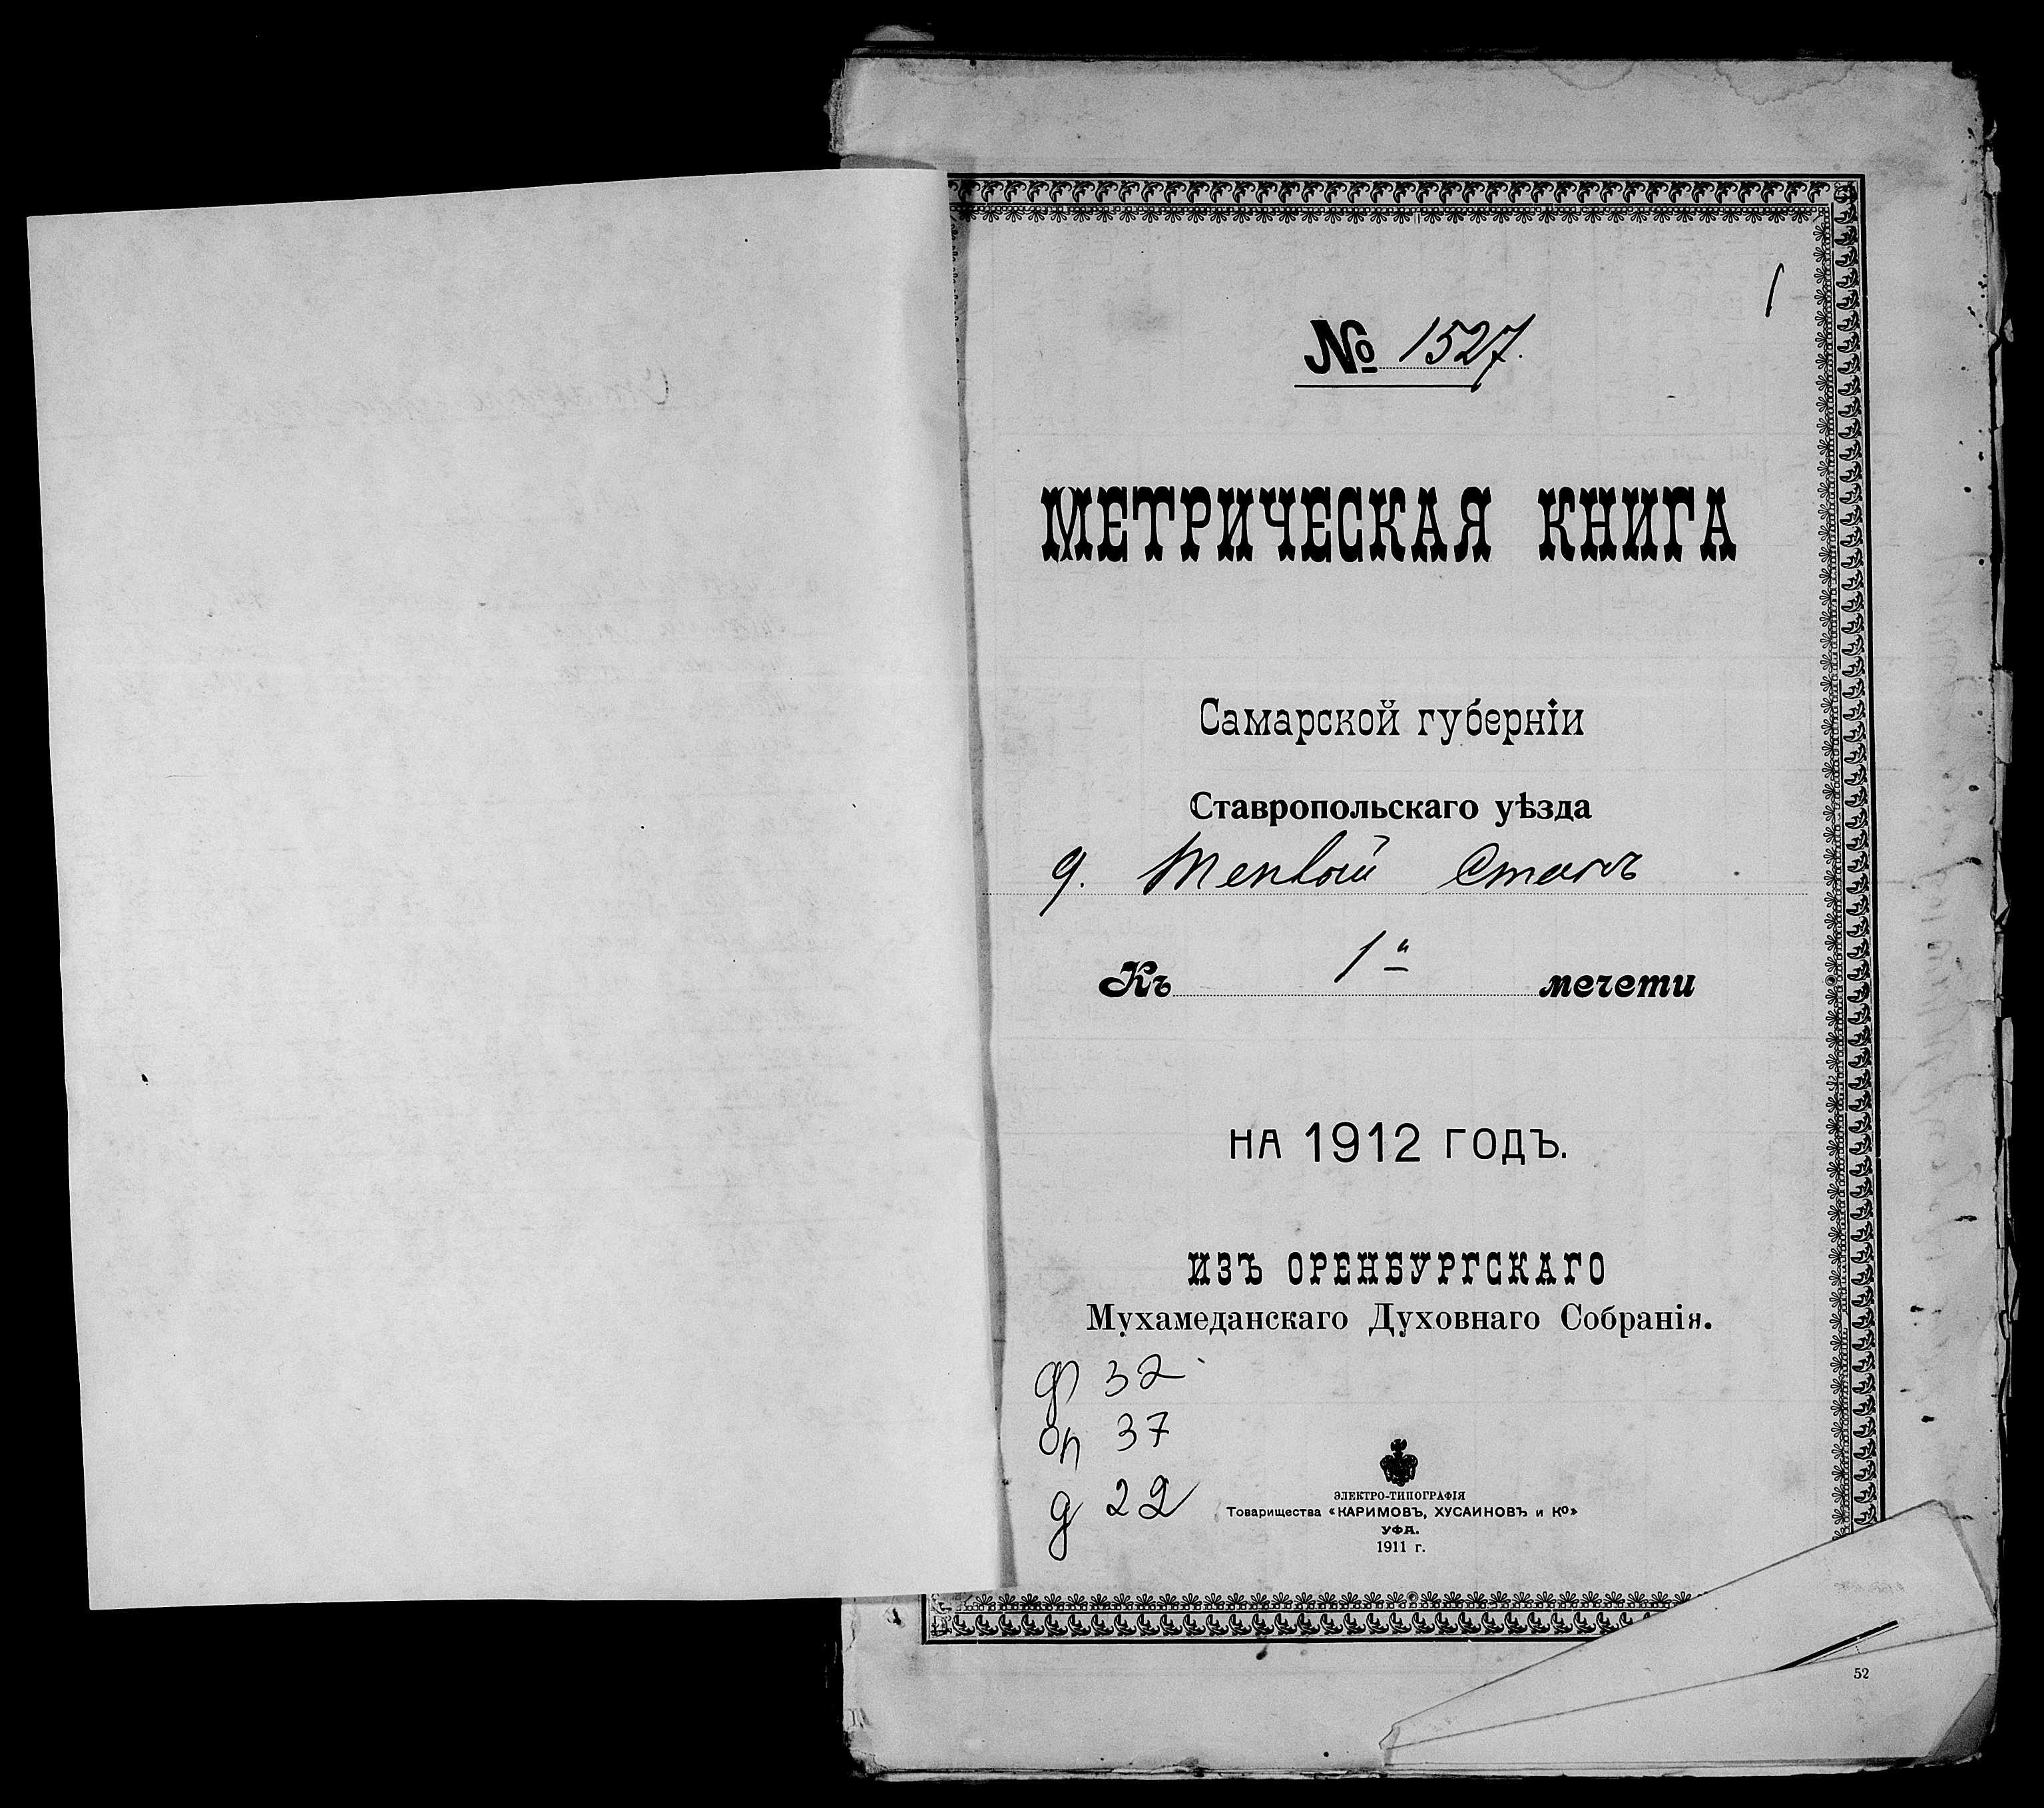 1
№ 1527.
МЕТРИЧЕСКАЯ КНИГА
Самарской губерніи
Ставропольскаго уѣзда
д. Теплый Станъ
Къ 1й мечети
НА 1912 ГОДЪ.
ИЗЪ ОРЕНБУРГСКАГО
Мухамеданскаго Духовнаго Собранія.
ф 32
оп 37
д 22
ЭЛЕКТРО-ТИПОГРАФІЯ
Товарищества «КАРИМОВЪ, ХУСАИНОВЪ и Ко»
УФА.
1911 г.
52